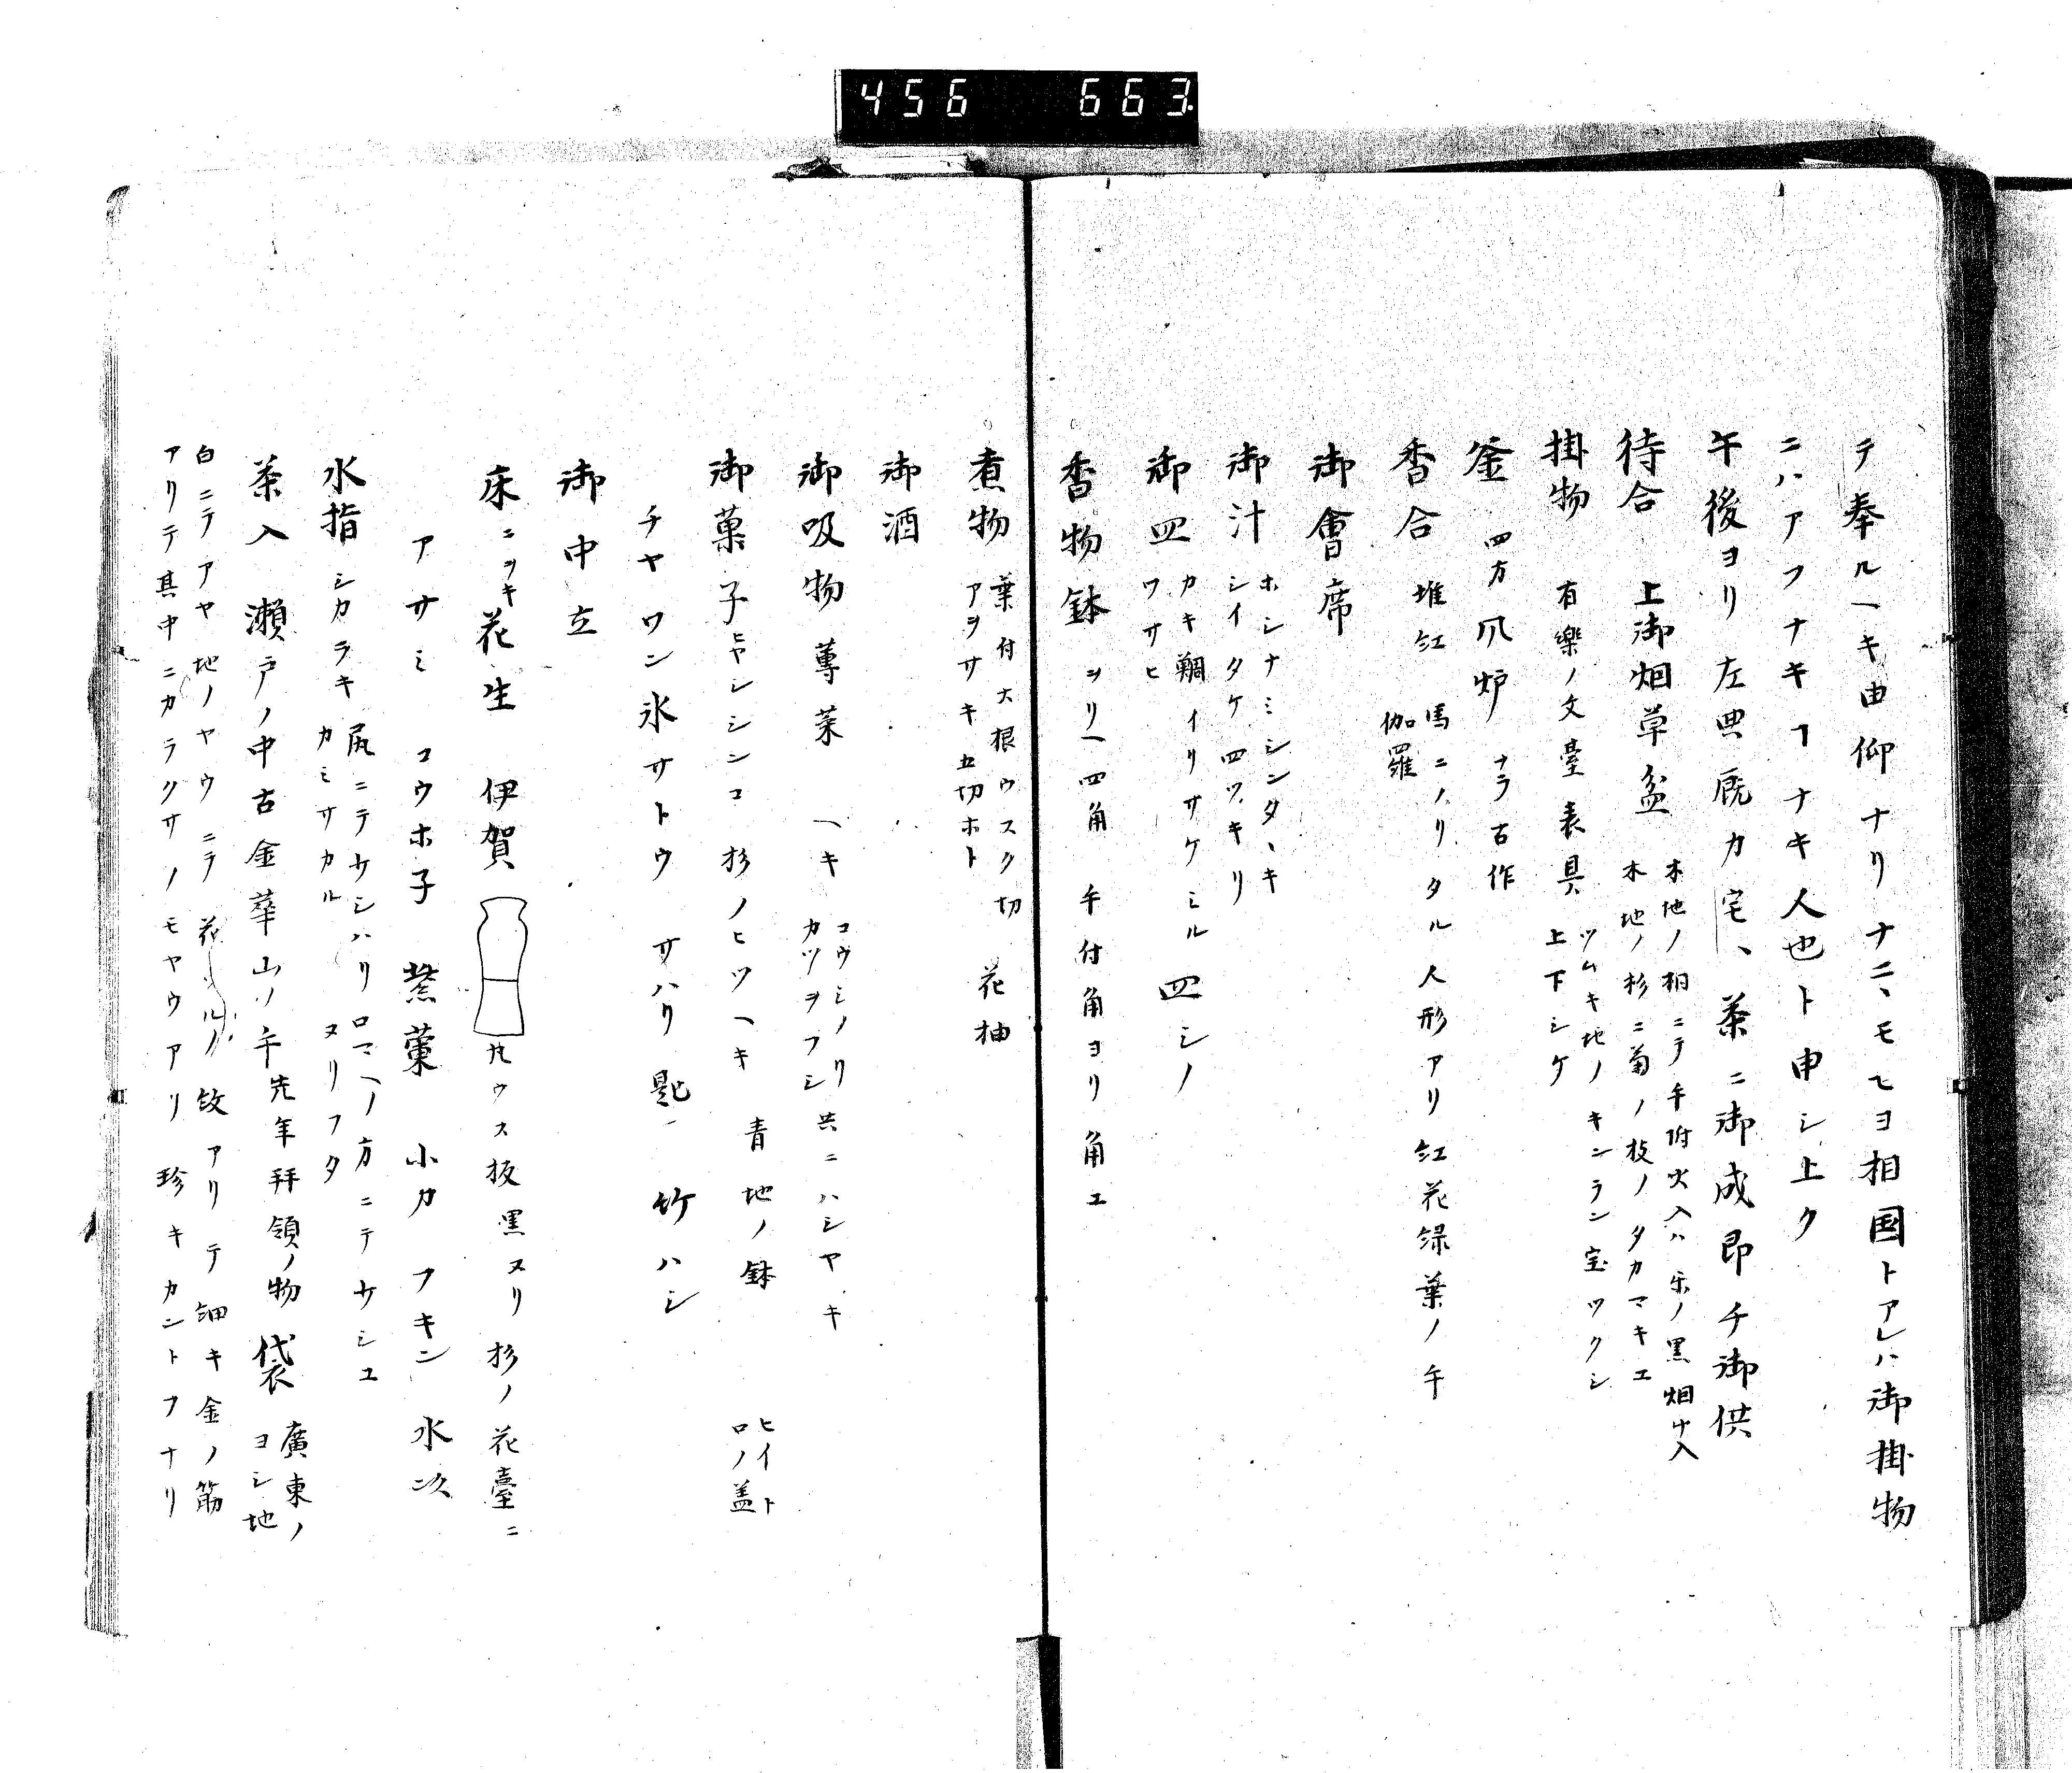 456 663
テ奉ルヘキ由仰ナリナニヽモセヨ相国トアレハ御掛物
ニハアフナキヿナキ人也ト申シ上ク
午後ヨリ左典厩カ宅ヽ茶ニ御成即チ御供
待合 上御烟草盆
木地ノ桐ニテ手附火入ハ楽ノ黒烟サ入
木地ノ杉ニ菊ノ枝ノタカマキエ
掛物 有樂ノ文臺表具
ツムキ地ノキンラン宝ツクシ
上下シケ
釜 四方爪炉 ナラ古作
香合 堆紅
馬ニノリタル人形アリ紅花緑葉ノ午
伽羅
御會席
御汁
ホシナミシンタヽキ
シイタケ四ツキリ
御皿
カキ鯛イリサケミル皿シノ
ワサヒ
香物鉢 ヲリヘ四角 手付角ヨリ角エ
煮物
葉付大根ウスク切 花柚
アヲサキ五切ホト
御酒
御吸物 蓴菜 ヘキ
コウシノリ
カツヲフシ
共ニハシヤキ
御菓子 ヒヤシシンコ 杉ノヒツヘキ 青地ノ鉢
ヒイト
ロノ蓋
チヤワン氷サトウ サハリ匙 竹ハシ
御中立
床ニヲキ 花生 伊賀 ウス板黒ヌリ杉ノ花臺ニ
アサミ コウホ子 蒸菓 小カ フキン 水次
水指 シカラキ
尻ニテサシハリロマヘノ方ニテサシエ
カミサカル ヌリフタ
茶入 瀬戸ノ中古金華山ノ午先年拝領ノ物 袋
廣東ノ
ヨシ地
白ニテアヤ地ノヤウニテ花 ノ紋アリテ細キ金ノ筋
アリテ其中ニカラクサノモヤウアリ珍キカントフナリ